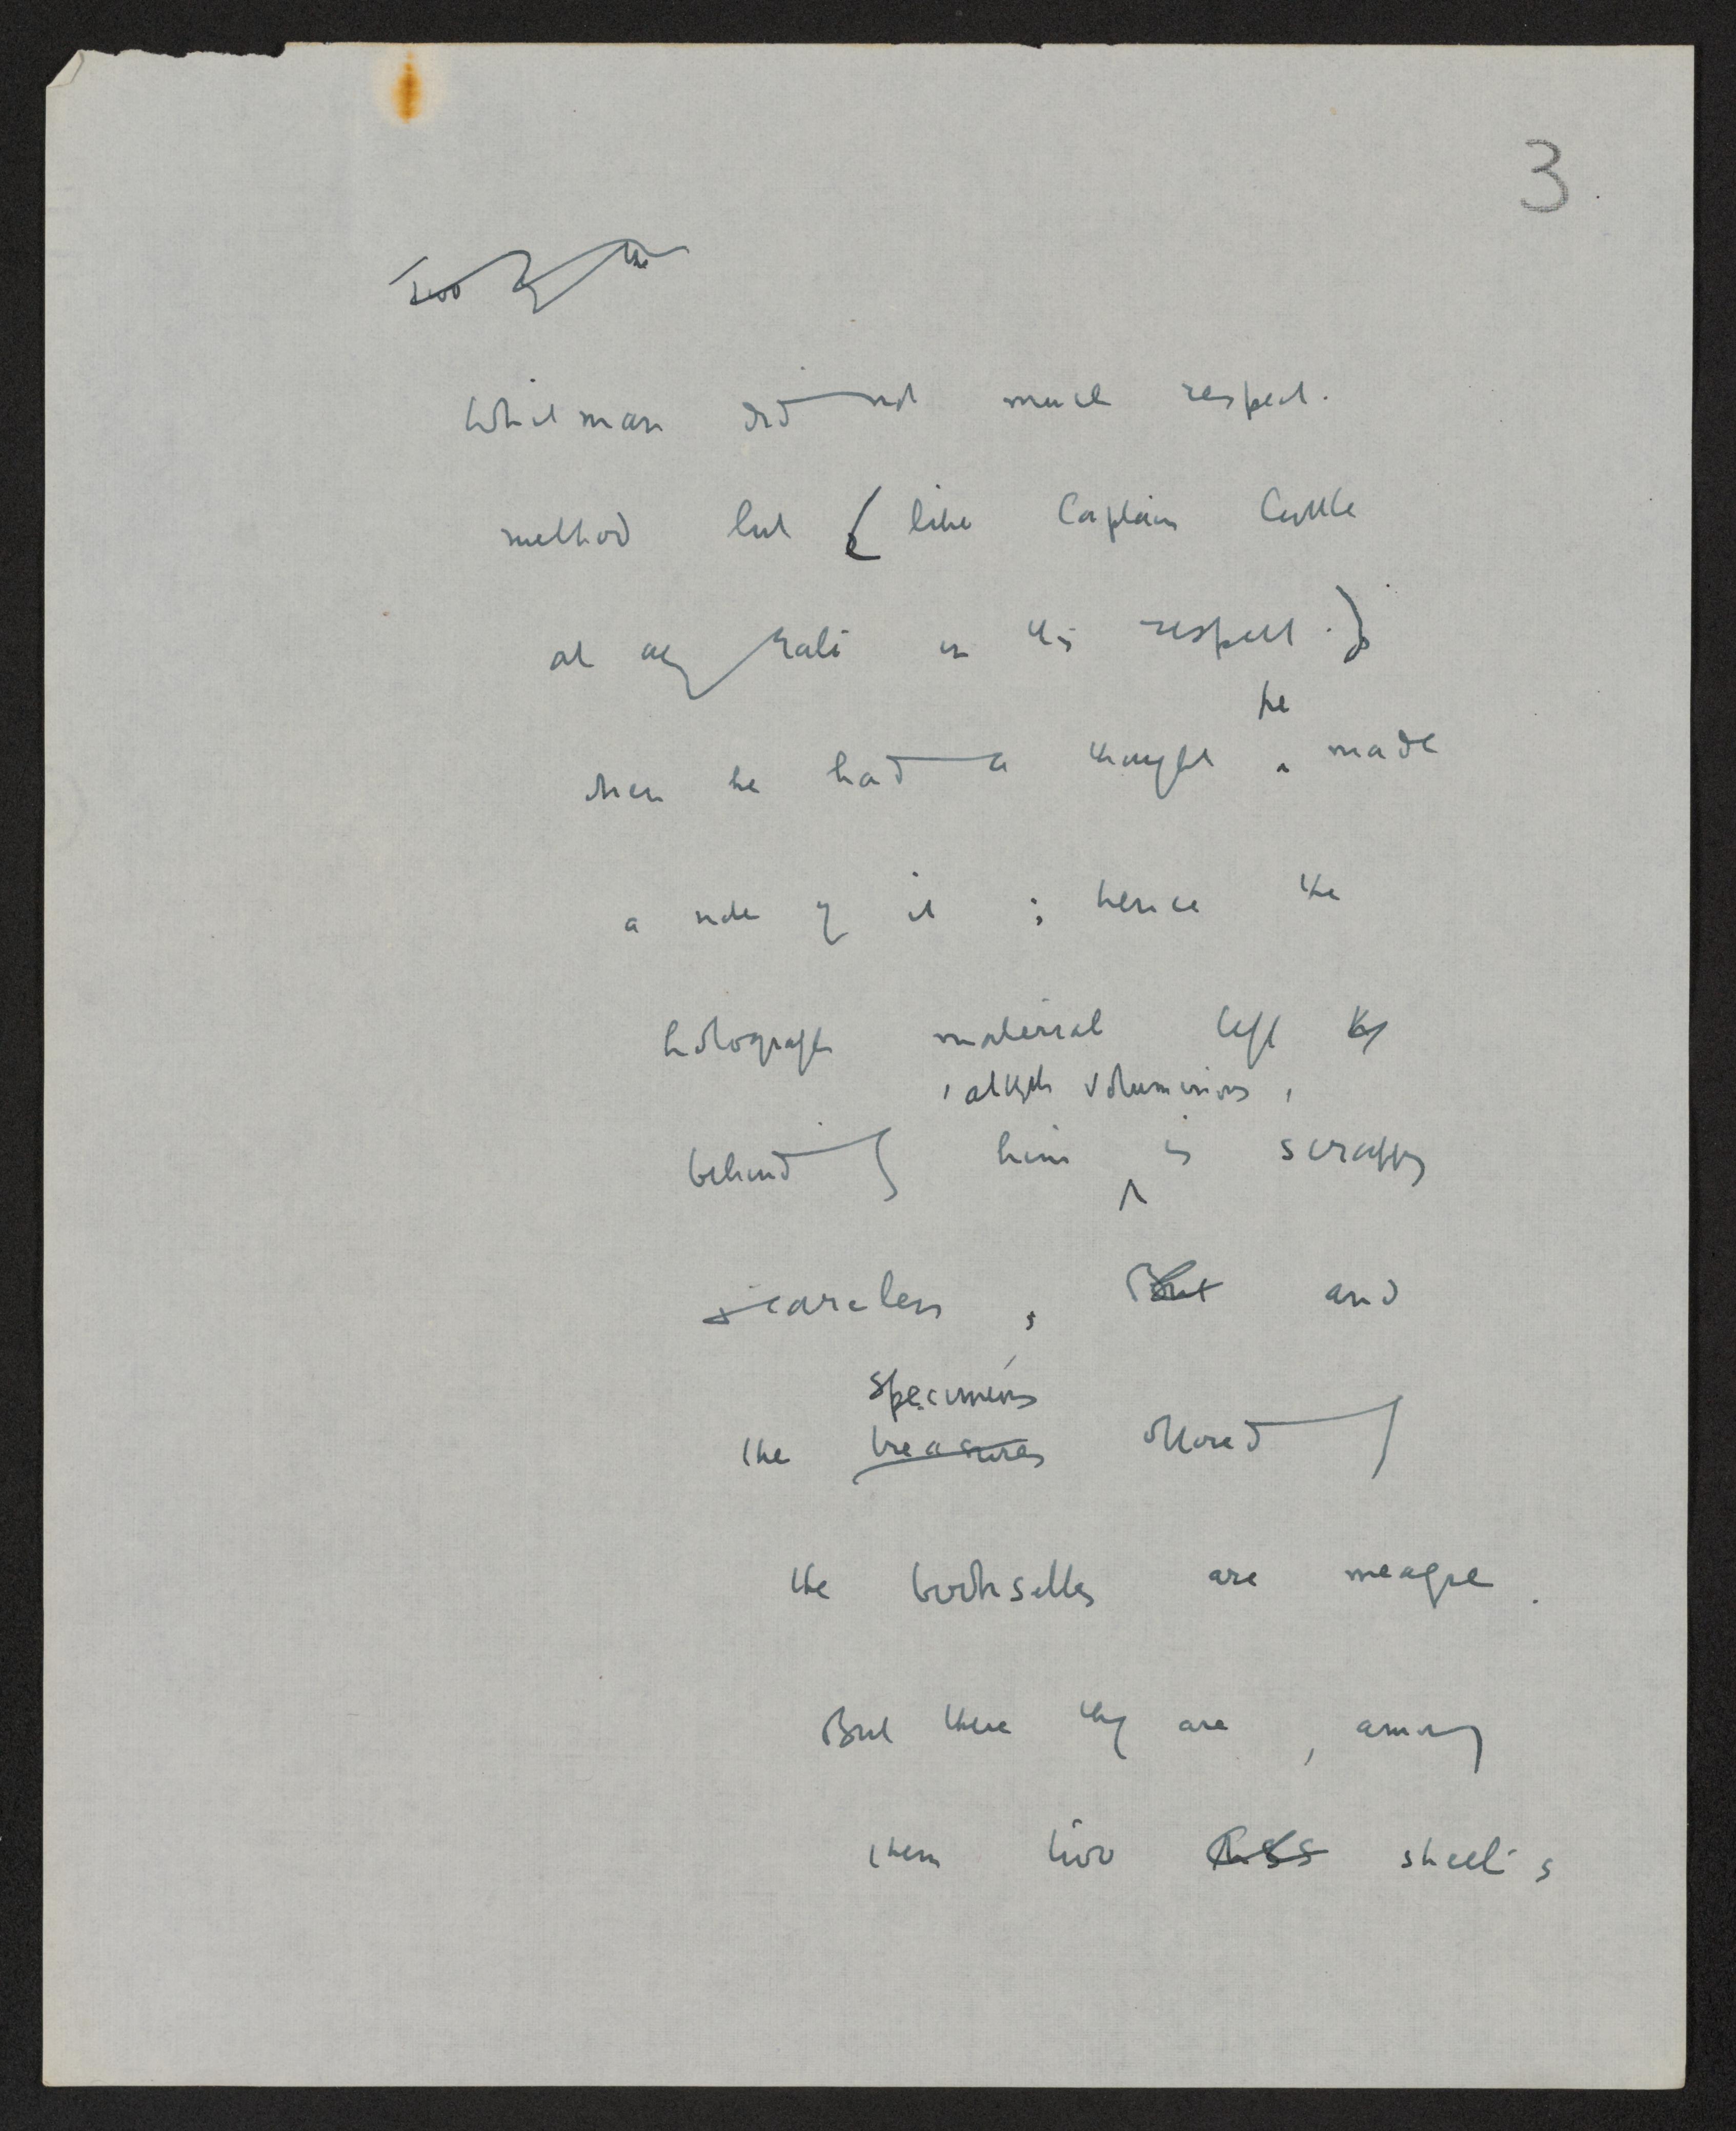 3
Two of the
Whitman did not much respect
method but (like Captain Cuttle
at any rate in this respect.)
he
when he had a thought ‸ made
a note of it ; hence the
holograph material left by
, altogh voluminous ,
behind him ‸ is scrappy
careless , But and
specimens
the treasures offered by
the booksellers are meagre .
But there they are , among
them two MSS sheets